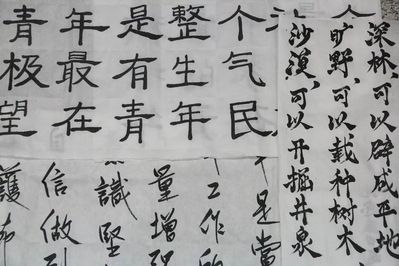 深林,可以辟成平地
旷野,可以栽种树木
沙漠,可以开掘井泉
青年是整个
极最有生气
望在青年民
是當
工作
量增強
識堅
信做到
護